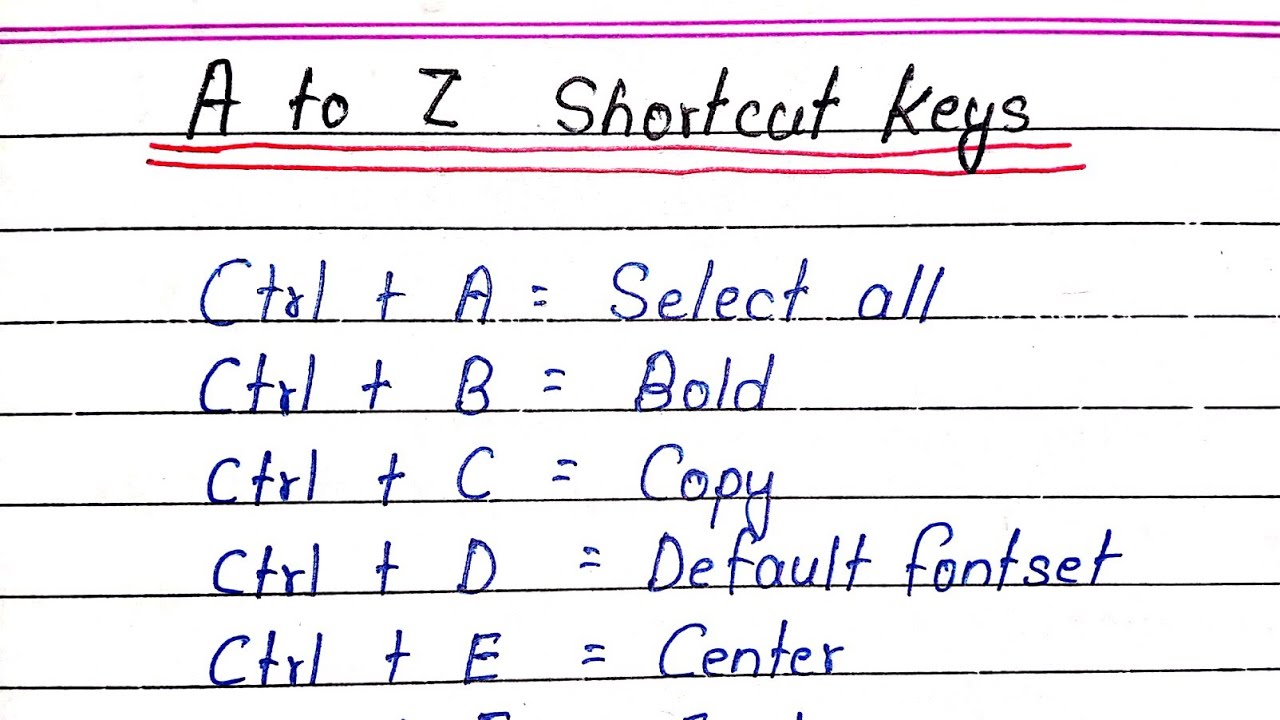 A to Z Shortcut Keys
Ctrl + A = Select all
Ctrl + B = Bold
Ctrl + C = Copy
Ctrl + D = Default fontset
Ctrl + E = Center